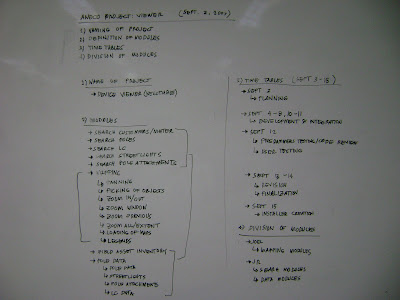 ANECO PROJECT: VIEWER (SEPT. 2, 2008)
1) NAMING OF PROJECT
2) DEFINITION OF MODULES
3) TIME TABLES
4) DIVISION OF MODULES
1) NAME OF PROJECT
→ DEVICE VIEWER
2) MODULES
→ SEARCH CUSTOMERS/METER
→ SEARCH POLES
→ SEARCH LC
→ SEARCH STREETLIGHTS
→ SEARCH POLE ATTACHMENTS
→ VIEWING
↳ PANNING
↳ PICKING OF OBJECTS
↳ ZOOM IN/OUT
↳ ZOOM WINDOW
↳ ZOOM PREVIOUS
↳ ZOOM ALL/EXTENT
↳ LOADING OF MAPS
↳ LEGENDS
→ FIELD ASSET INVENTORY
→ POLE DATA
↳ POLE DATA
↳ STREETLIGHTS
↳ POLE ATTACHMENTS
↳ LC DATA
3) TIME TABLES (SEPT 3-15)
→ SEPT 2
↳ PLANNING
→ SEPT. 4-8, 10-11
↳ DEVELOPMENT & INTEGRATION
→ SEPT 12
↳ PROGRAMMER TESTING/CODE REVIEW
↳ USER TESTING
→ SEPT 13-14
↳ REVISION
↳ FINALIZATION
→ SEPT 15
↳ INSTALLER CREATION
4) DIVISION OF MODULES
→ JOEL
↳ MAPPING MODULES
→ JR
↳ SEARCH MODULES
↳ DATA MODULES